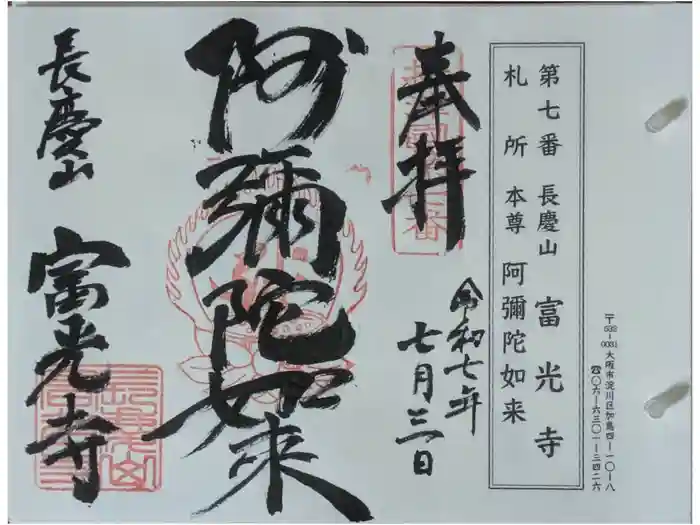 〒532-0031 大阪市淀川区加島四-一〇-八
☎〇六-六三〇一-三四二六
第七番 長慶山 富光寺
札所 本尊 阿彌陀如来
奉拝
令和七年
七月三日
阿彌陀如来
長慶山 富光寺